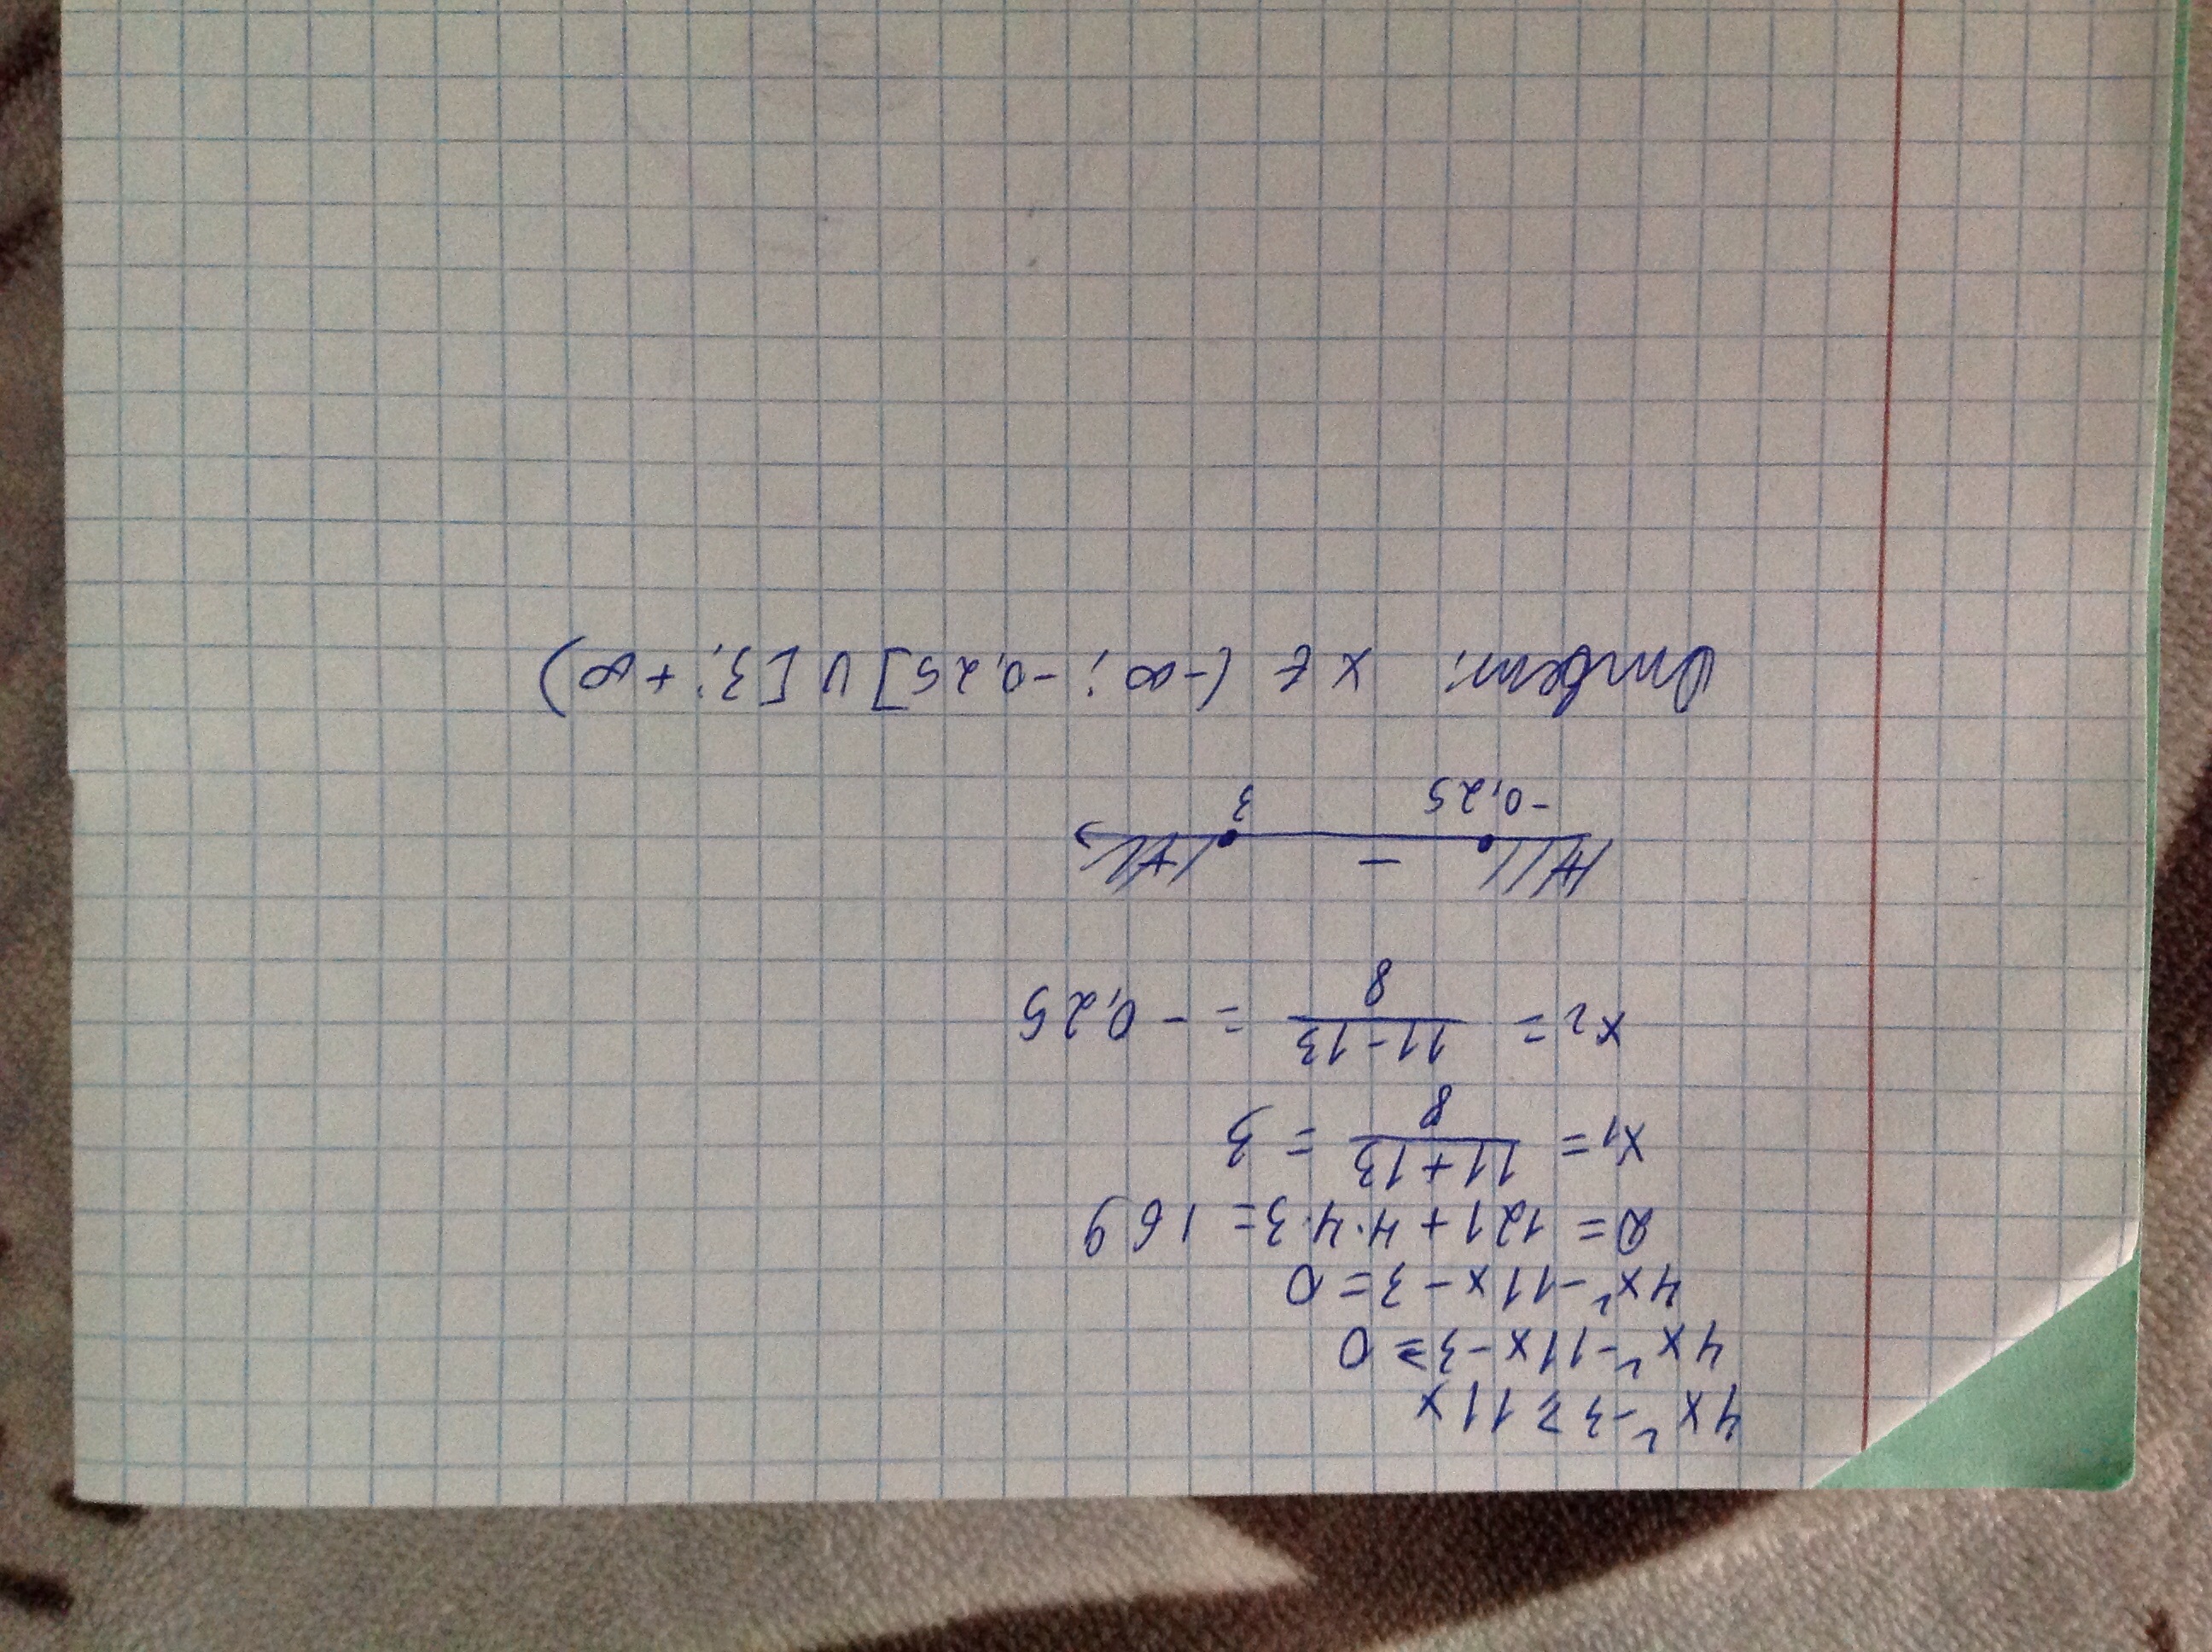 4x² - 3 ≥ 11x
4x² - 11x - 3 ≥ 0
4x² - 11x - 3 = 0
D = 121 + 4·4·3 = 169
x₁ = (11 + 13)/8 = 3
x₂ = (11 - 13)/8 = -0,25
+ - +
-0,25 3
Ответ: x ∈ (-∞; -0,25] ∪ [3; +∞)